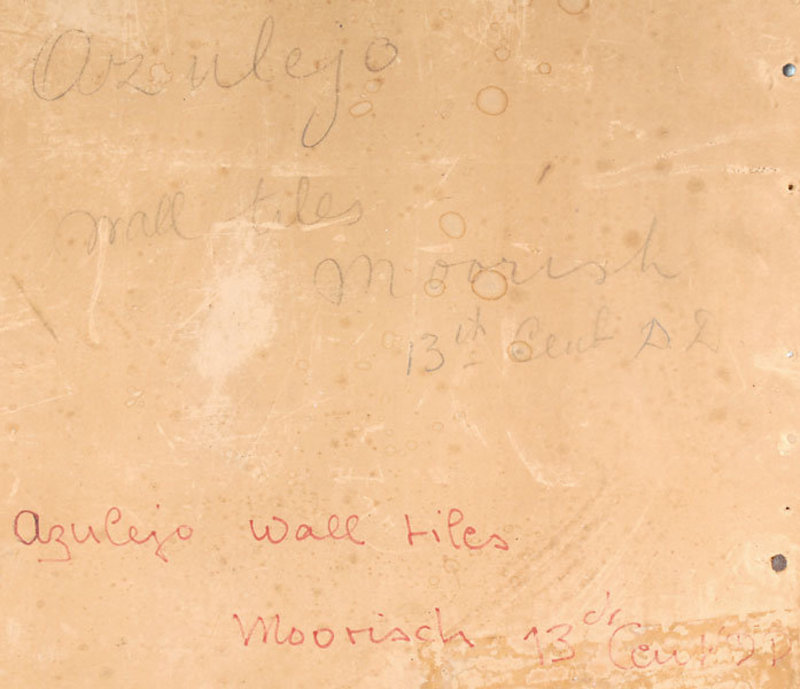 Azulejo
Wall tiles
Moorish
13th Cent
Azulejo wall tiles
Moorisch 13 Cent